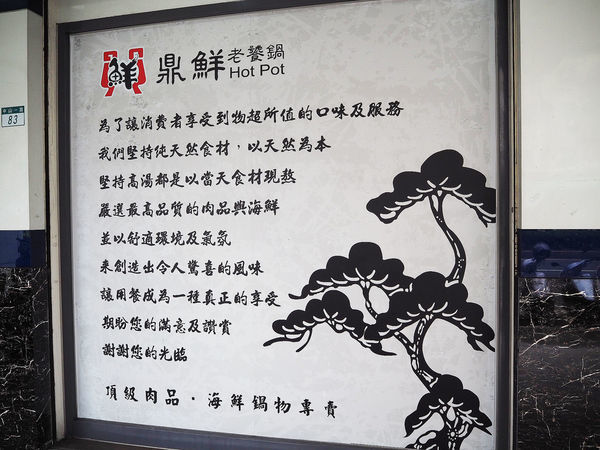 鮮
鼎鮮老饕鍋
Hot Pot
為了讓消費者享受到物超所值的口味及服務
我們堅持純天然食材,以天然為本
堅持高湯都是以當天食材現熬
嚴選最高品質的肉品與海鮮
並以舒適環境及氣氛
來創造出令人驚喜的風味
讓用餐成為一種真正的享受
期盼您的滿意及讚賞
謝謝您的光臨
頂級肉品・海鮮鍋物專賣
83